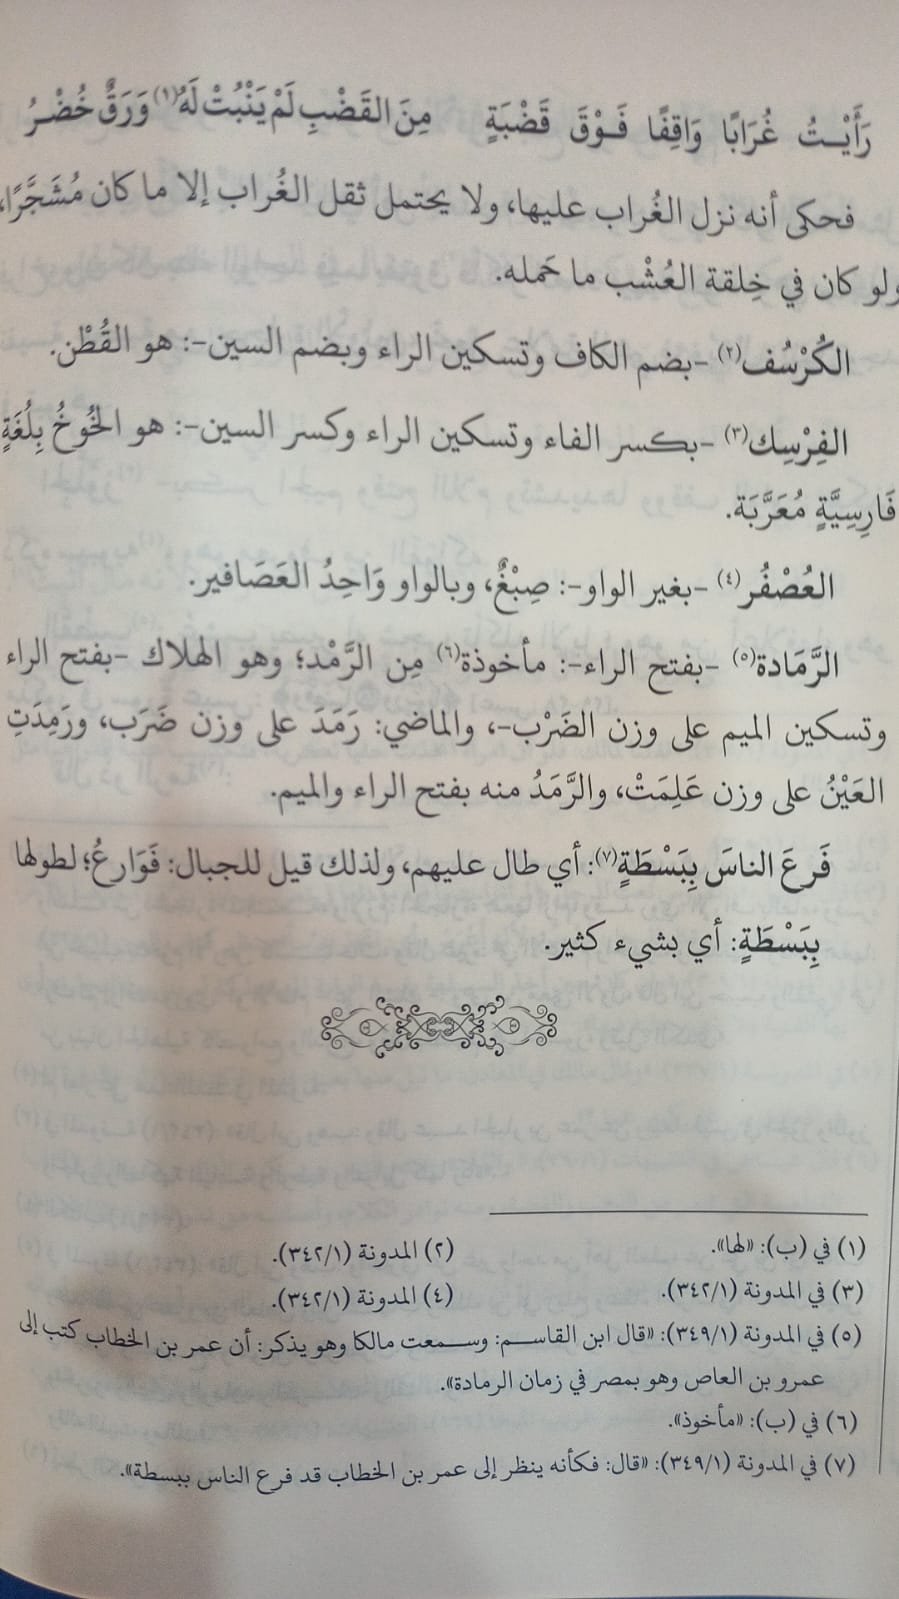 رَأَيْتُ غُرَابًا وَاقِفًا فَوْقَ قَضْبَةٍ مِنَ القَضْبِ لَمْ يَنْبُتْ لَهُ(١) وَرَقٌ خُضْرُ
فحكى أنه نزل الغُراب عليها، ولا يحتمل ثقل الغُراب إلا ما كان مُشَجَّرًا،
ولو كان في خِلقة العُشْب ما حَمله.
الكُرْسُف(٢) -بضم الكاف وتسكين الراء وبضم السين-: هو القُطْن.
الفِرْسِك(٣) -بكسر الفاء وتسكين الراء وكسر السين-: هو الخُوخُ بِلُغَةٍ
فَارِسِيَّةٍ مُعَرَّبَة.
العُصْفُر(٤) -بغير الواو-: صِبْغٌ، وبالواو وَاحِدُ العَصَافير.
الرَّمَادة(٥) -بفتح الراء-: مأخوذة(٦) مِن الرَّمْد؛ وهو الهلاك -بفتح الراء
وتسكين الميم على وزن الضَرْب-، والماضي: رَمَدَ على وزن ضَرَب، ورَمِدَتِ
العَيْنُ على وزن عَلِمَتْ، والرَّمَدُ منه بفتح الراء والميم.
فَرعَ الناسَ بِبَسْطَةٍ(٧): أي طال عليهم، ولذلك قيل للجبال: فَوَارعُ؛ لطولها
بِبَسْطَةٍ: أي بشيء كثير.
(١) في (ب): «لها». (٢) المدونة (٣٤٢/١).
(٣) في المدونة (٣٤٢/١). (٤) المدونة (٣٤٢/١).
(٥) في المدونة (٣٤٩/١): «قال ابن القاسم: وسمعت مالكا وهو يذكر: أن عمر بن الخطاب كتب إلى
عمرو بن العاص وهو بمصر في زمان الرمادة».
(٦) في (ب): «مأخوذ».
(٧) في المدونة (٣٤٩/١): «قال: فكأنه ينظر إلى عمر بن الخطاب قد فرع الناس ببسطة».